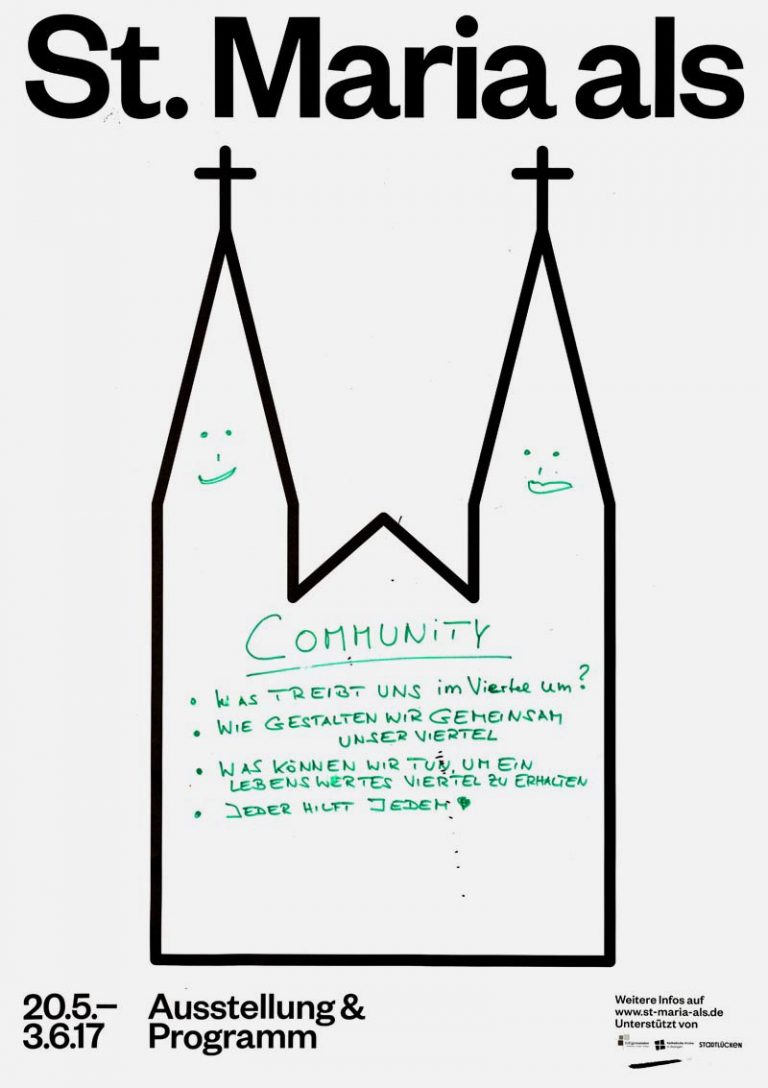 St. Maria als
COMMUNITY
• WAS TREIBT UNS im Viertel um?
• WIE GESTALTEN WIR GEMEINSAM
UNSER VIERTEL
• WAS KÖNNEN WIR TUN, UM EIN
LEBENSWERTES VIERTEL ZU ERHALTEN
• JEDER HILFT JEDEM
20.5.–
3.6.17
Ausstellung &
Programm
Weitere Infos auf
www.st-maria-als.de
Unterstützt von
STADTLÜCKEN